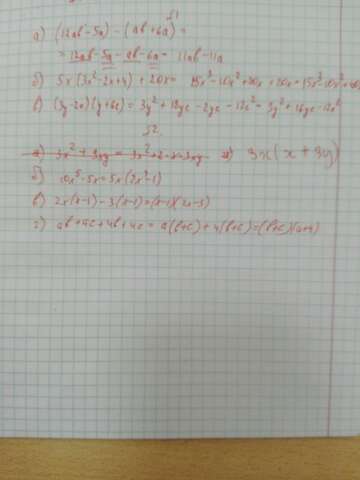 №1
а) (12ab - 5a) - (ab + 6a) =
= 12ab - 5a - ab - 6a = 11ab - 11a
б) 5x(3x² - 2x + 4) + 20x = 15x³ - 10x² + 20x + 20x = 15x³ - 10x² + 40x
в) (3y - 2c)(y + 6c) = 3y² + 18yc - 2yc - 12c² = 3y² + 16yc - 12c²
№2.
3x(x + 3y)
б) 10x⁵ - 5x = 5x(2x⁴ - 1)
в) 2x(x - 1) - 3(x - 1) = (x - 1)(2x - 3)
г) ab + ac + 4b + 4c = a(b + c) + 4(b + c) = (b + c)(a + 4)